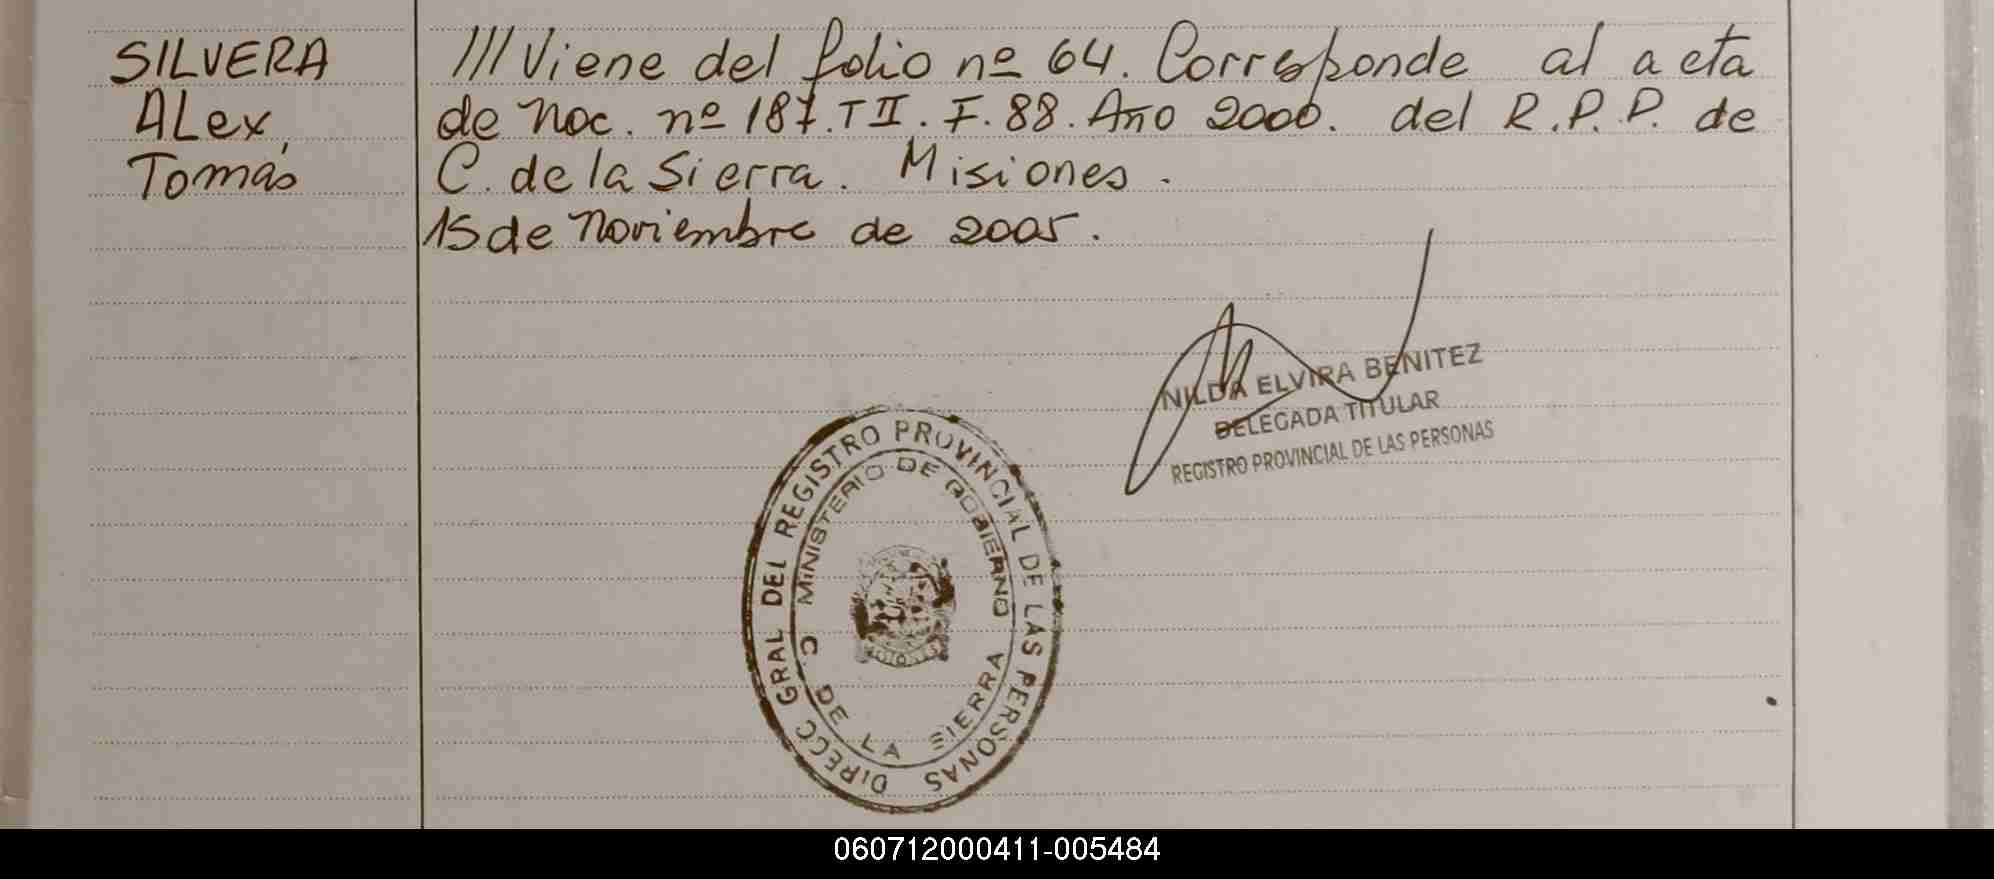 SILVERA
ALex,
Tomás
///Viene del folio nº 64. Corresponde al acta
de Noc. nº 187.T II. F. 88. Año 2000. del R.P.P. de
C. de la Sierra. Misiones.
15 de Noviembre de 2005.
NILDA ELVIRA BENITEZ
DELEGADA TITULAR
REGISTRO PROVINCIAL DE LAS PERSONAS
DIRECC GRAL DEL REGISTRO PROVINCIAL DE LAS PERSONAS
MINISTERIO DE GOBIERNO
C. DE LA SIERRA
060712000411-005484